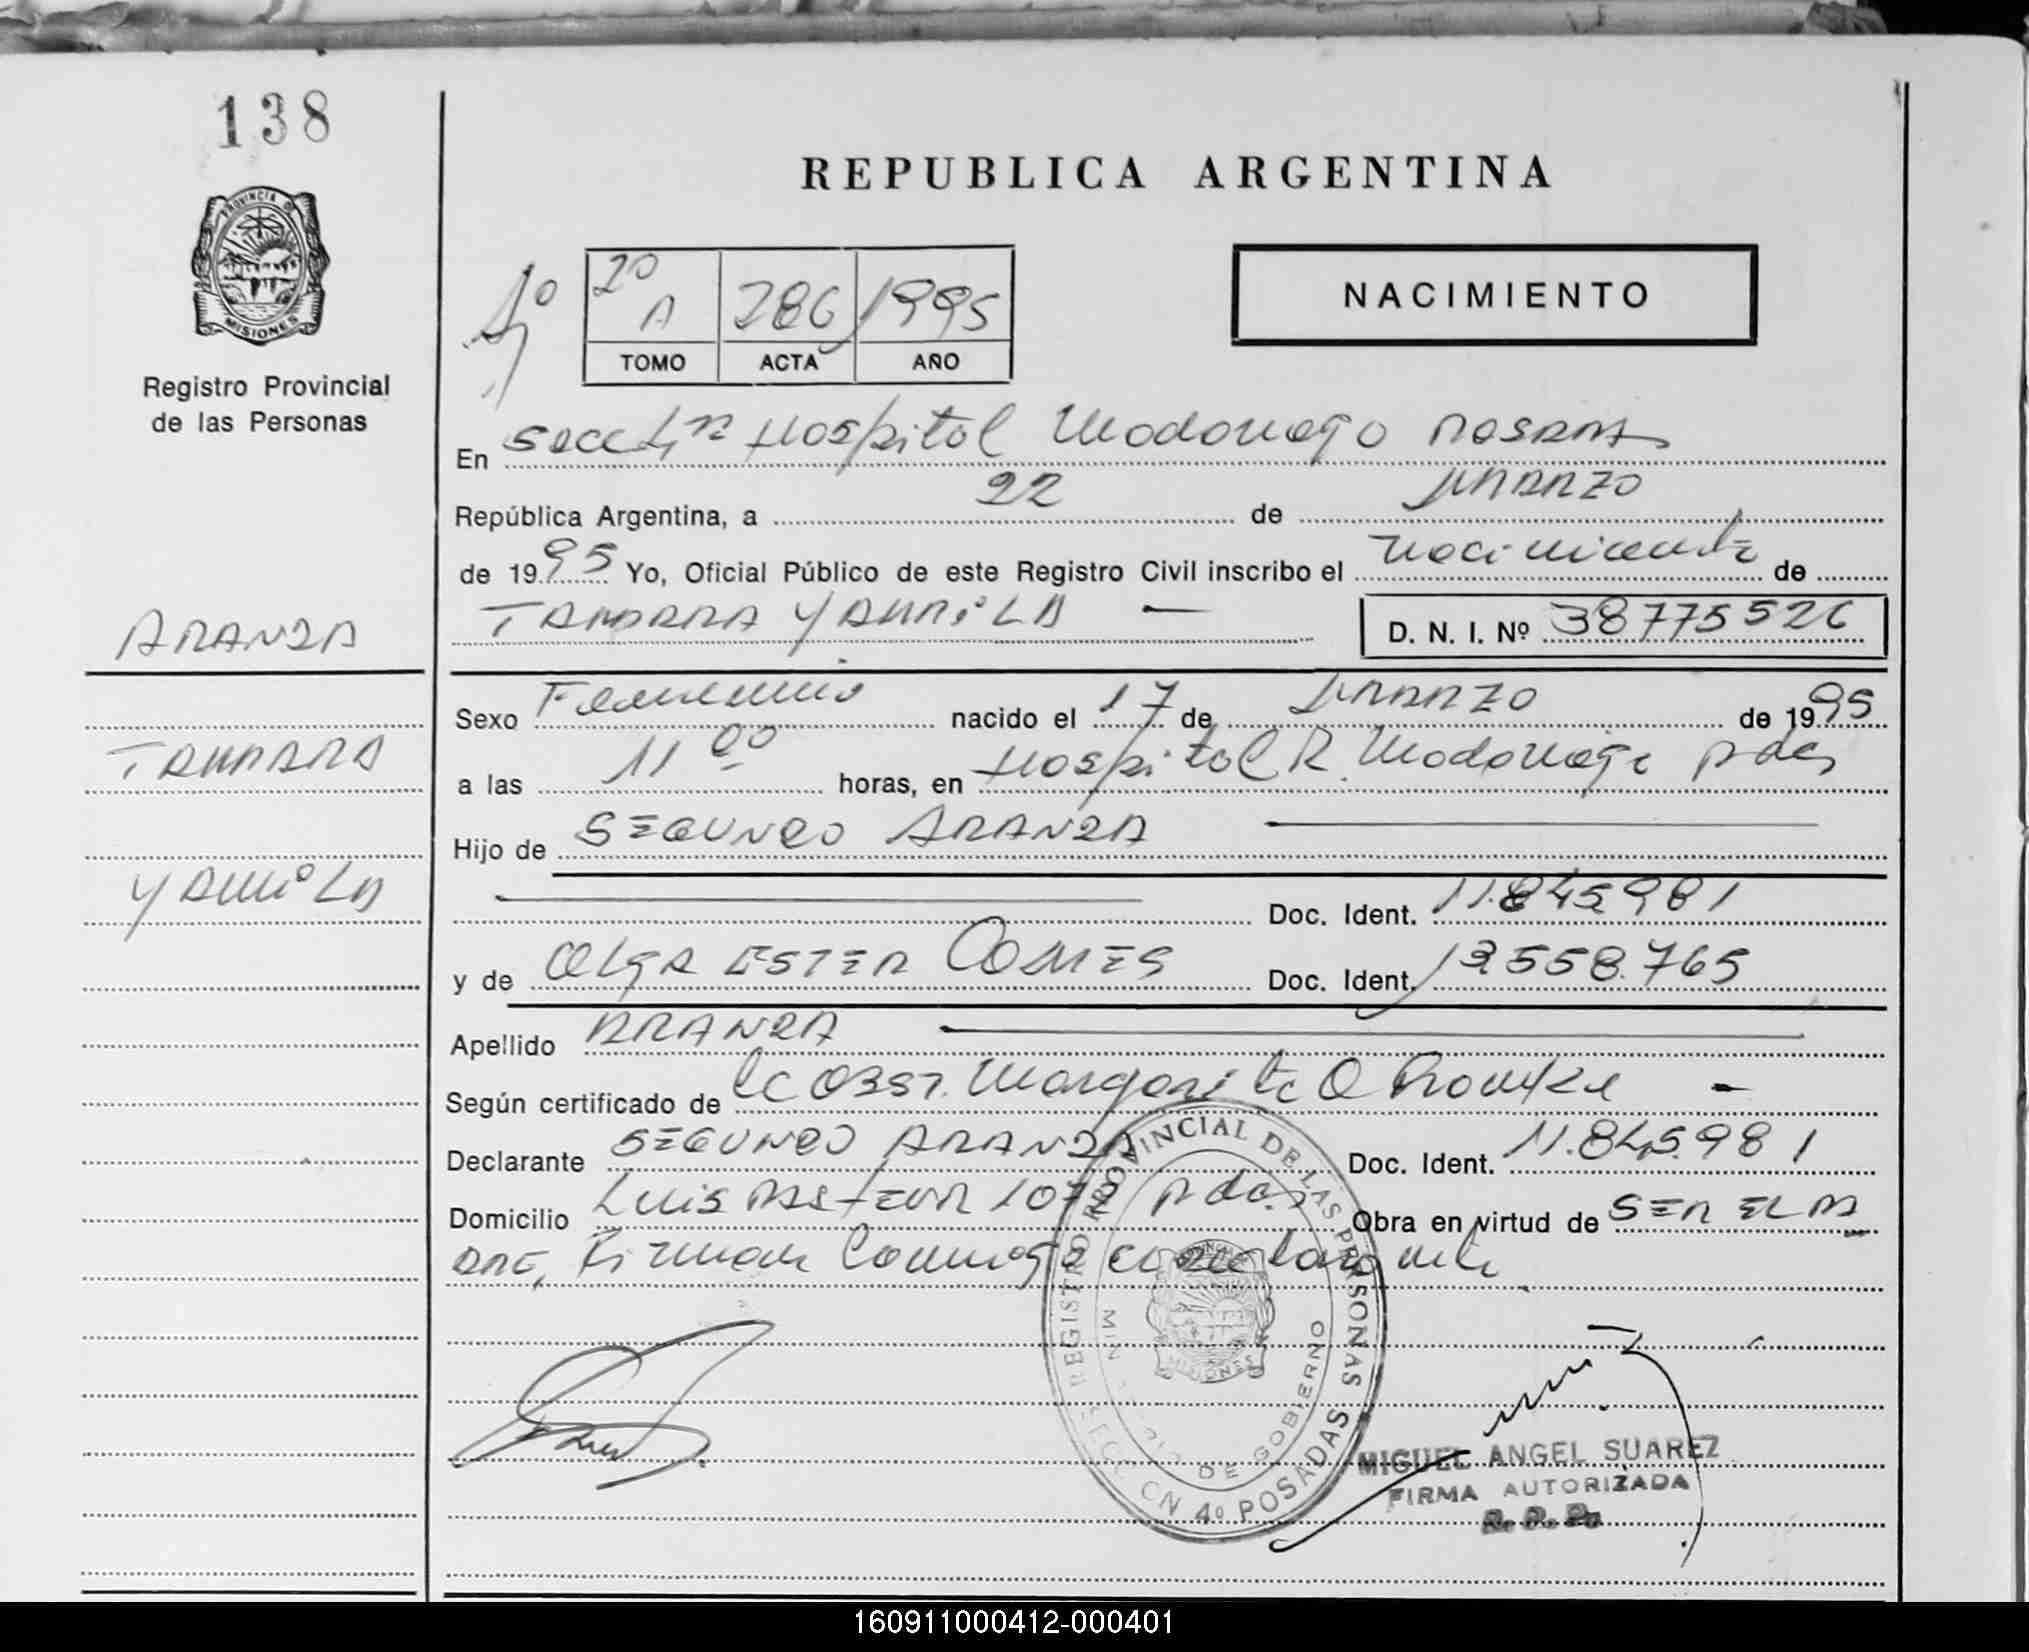 138
REPUBLICA ARGENTINA
PROVINCIA DE MISIONES
Registro Provincial
de las Personas
4º
2º A 286 1995
TOMO ACTA AÑO
NACIMIENTO
En Secc 4ta Hospital Madariaga POSADAS
República Argentina, a 22 de MARZO
de 1995 Yo, Oficial Público de este Registro Civil inscribo el nacimiento de
TAMARA YAMiLA — D. N. I. Nº 38775526
ARANDA
TAMARA
YAMiLA
Sexo Femenino nacido el 17 de MARZO de 1995
a las 11 00 horas, en Hospital R. Madariaga Pdas
Hijo de SEGUNDO ARANDA
Doc. Ident. 11.845981
y de OLGA ESTER Doc. Ident. 13558.765
Apellido ARANDA
Según certificado de Obst. Margarita —
Declarante SEGUNDO ARANDA Doc. Ident. 11.845.981
Domicilio Luis PASTEUR Pdas Obra en virtud de SER EL PA
DRE, Firman Conmigo
REGISTRO PROVINCIAL DE LAS PERSONAS
MINISTERIO DE GOBIERNO
MISIONES
SECCION 4º POSADAS
MIGUEL ANGEL SUAREZ
FIRMA AUTORIZADA
R. P. P.
160911000412-000401